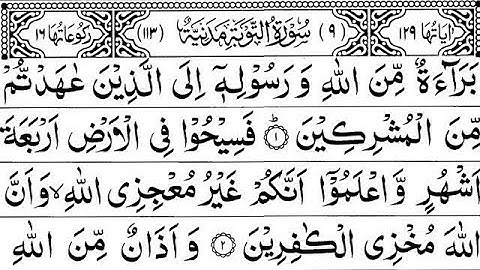 اٰيَاتُهَا ١٢٩ (٩) سُوْرَةُ التَّوْبَةِ مَدَنِيَّةٌ (١١٣) رُكُوْعَاتُهَا ١٦
بَرَآءَةٌ مِّنَ اللّٰهِ وَرَسُوْلِهٖٓ اِلَى الَّذِيْنَ عٰهَدْتُّمْ
مِّنَ الْمُشْرِكِيْنَ ۝١ؕ فَسِيْحُوْا فِى الْاَرْضِ اَرْبَعَةَ
اَشْهُرٍ وَّاعْلَمُوْٓا اَنَّكُمْ غَيْرُ مُعْجِزِى اللّٰهِ ۙ وَاَنَّ
اللّٰهَ مُخْزِى الْكٰفِرِيْنَ ۝٢ وَاَذَانٌ مِّنَ اللّٰهِ